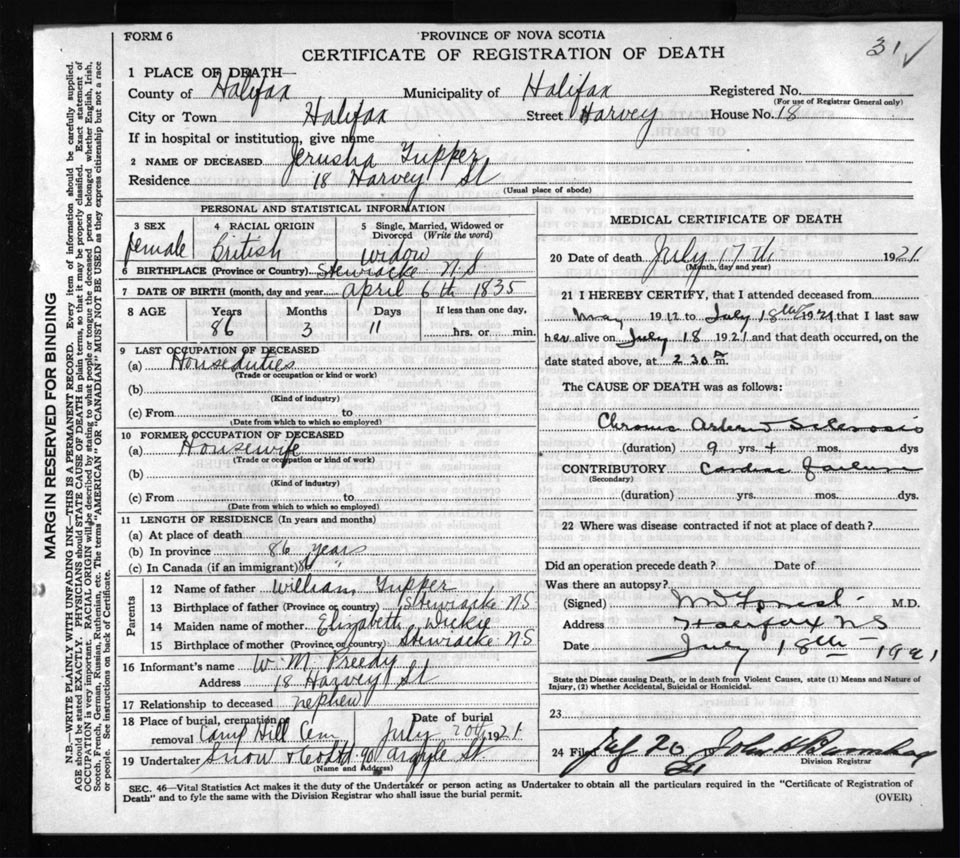 FORM 6
PROVINCE OF NOVA SCOTIA
CERTIFICATE OF REGISTRATION OF DEATH
31 ✓
1 PLACE OF DEATH—
County of Halifax Municipality of Halifax Registered No.
(For use of Registrar General only)
City or Town Halifax Street Harvey House No. 18
If in hospital or institution, give name
2 NAME OF DECEASED Jerusha Tupper
Residence 18 Harvey St
(Usual place of abode)
PERSONAL AND STATISTICAL INFORMATION
3 SEX 4 RACIAL ORIGIN 5 Single, Married, Widowed or Divorced (Write the word)
female British widow
6 BIRTHPLACE (Province or Country) Stewiacke N S
7 DATE OF BIRTH (month, day and year) April 6th 1835
8 AGE Years Months Days If less than one day,
86 3 11 hrs. or min.
9 LAST OCCUPATION OF DECEASED
(a) Houseduties
(Trade or occupation or kind or work)
(b)
(Kind of industry)
(c) From to
(Date from which to which so employed)
10 FORMER OCCUPATION OF DECEASED
(a) Housewife
(Trade or occupation or kind of work)
(b)
(Kind of industry)
(c) From to
(Date from which to which so employed)
11 LENGTH OF RESIDENCE (In years and months)
(a) At place of death
(b) In province 86 years
(c) In Canada (if an immigrant) 86 "
Parents
12 Name of father William Tupper
13 Birthplace of father (Province or country) Stewiacke NS
14 Maiden name of mother Elizabeth Dickie
15 Birthplace of mother (Province or country) Stewiacke NS
16 Informant's name W. M. Preedy
Address 18 Harvey St
17 Relationship to deceased nephew
18 Place of burial, cremation Date of burial
removal Camp Hill Cem July 20th 1921
19 Undertaker Snow & Co Ltd 90 Argyle St
(Name and Address)
MEDICAL CERTIFICATE OF DEATH
20 Date of death July 17th 1921
(Month, day and year)
21 I HEREBY CERTIFY, that I attended deceased from
May 1912 to July 18th 1921 that I last saw
her alive on July 18 1921 and that death occurred, on the
date stated above, at 2.30 a m.
The CAUSE OF DEATH was as follows:
Chronic Arterio Sclerosis
(duration) 9 yrs. 4 mos. dys
CONTRIBUTORY Cardiac failure
(Secondary)
(duration) yrs. mos. dys.
22 Where was disease contracted if not at place of death?
Did an operation precede death? Date of
Was there an autopsy?
(Signed) M.D.
Address Halifax NS
Date July 18th 1921
State the Disease causing Death, or in death from Violent Causes, state (1) Means and Nature of
Injury, (2) whether Accidental, Suicidal or Homicidal.
23
24 Filed July 20 1921
Division Registrar
SEC. 46—Vital Statistics Act makes it the duty of the Undertaker or person acting as Undertaker to obtain all the particulars required in the "Certificate of Registration of
Death" and to fyle the same with the Division Registrar who shall issue the burial permit.
(OVER)
MARGIN RESERVED FOR BINDING
N.B.—WRITE PLAINLY WITH UNFADING INK—THIS IS A PERMANENT RECORD. Every item of information should be carefully supplied.
AGE should be stated EXACTLY. PHYSICIANS should STATE CAUSE OF DEATH in plain terms, so that it may be properly classified. Exact statement of
OCCUPATION is very important. RACIAL ORIGIN will be described by stating to what people or tongue the deceased person belonged whether English, Irish,
Scotch, French, German, Russian, Ruthenian, etc. The terms "AMERICAN" OR "CANADIAN" MUST NOT BE USED as they express citizenship but not a race
or people. See instructions on back of Certificate.